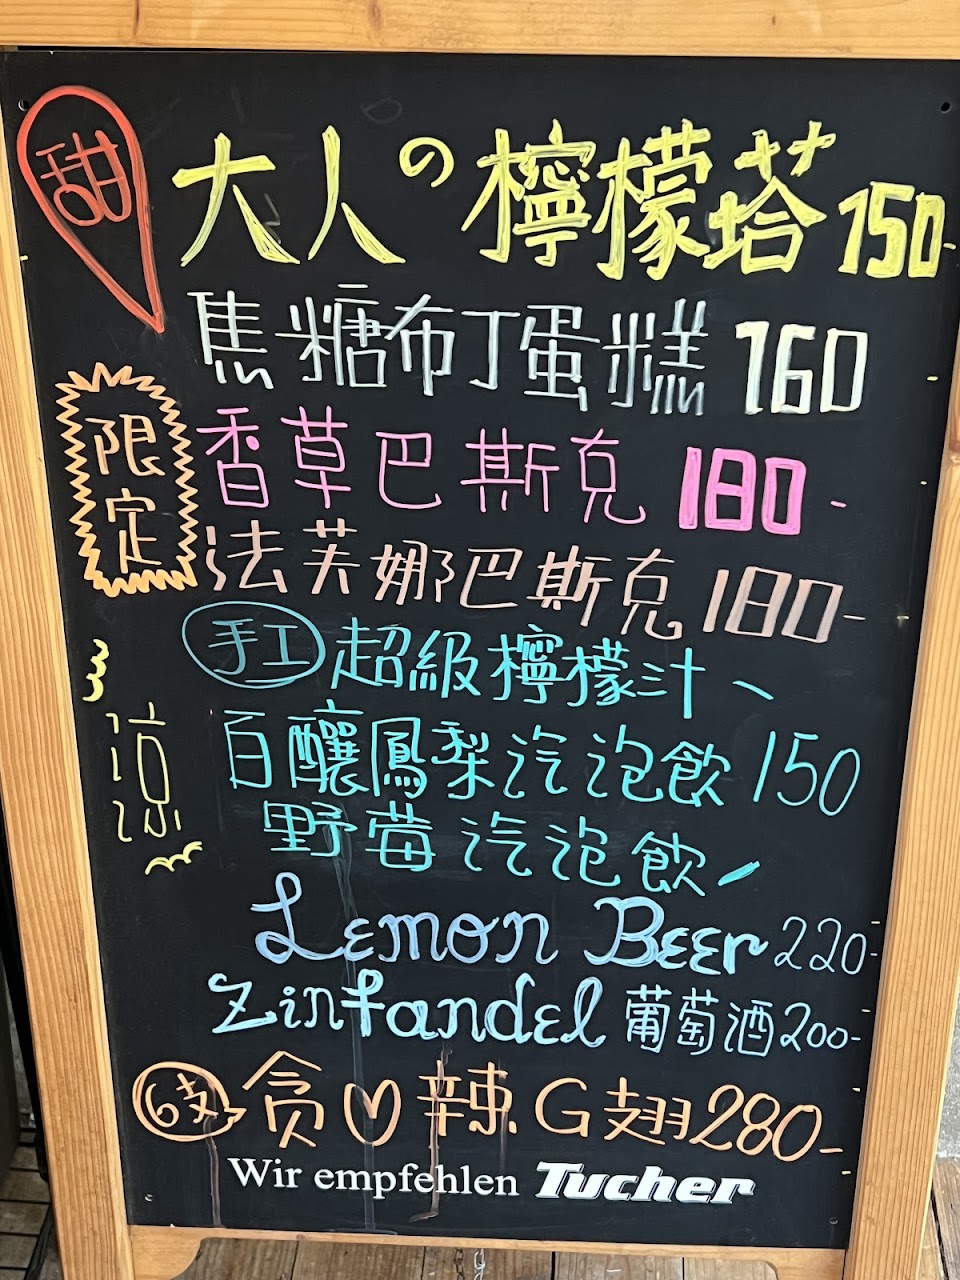 甜
大人の檸檬塔150-
焦糖布丁蛋糕160
限定
香草巴斯克180-
法芙娜巴斯克180-
手工超級檸檬汁、
涼
百釀鳳梨汽泡飲150
野莓汽泡飲
Lemon Beer 220-
Zinfandel 葡萄酒200-
6支貪♡辣G翅280-
Wir empfehlen Tucher